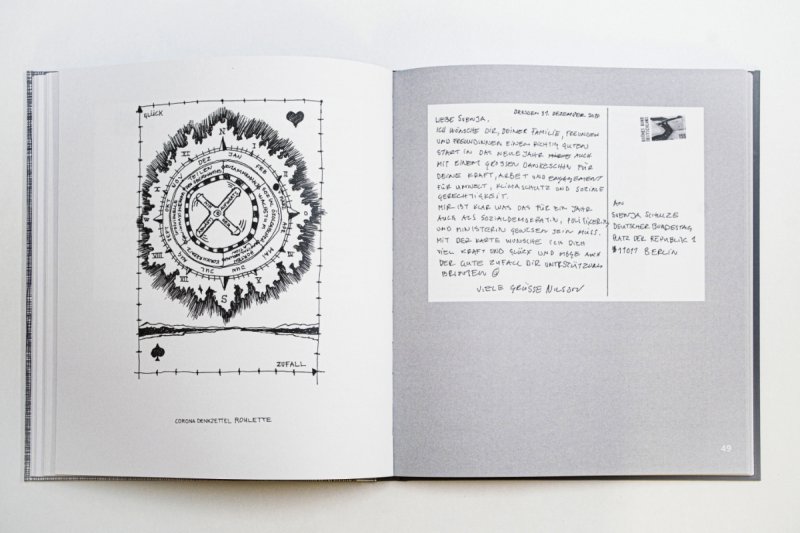 GLÜCK
N
S
JAN
FEB
MAI
JUN
JUL
NOV
DEZ
TEILEN
ZUFALL
CORONA DENKZETTEL ROULETTE
DRESDEN 31. DEZEMBER
LIEBE SVENJA,
ICH WÜNSCHE DIR, DEINER FAMILIE, FREUNDEN
UND FREUNDINNEN EINEN RICHTIG GUTEN
START IN DAS NEUE JAHR AUCH
MIT EINEM GROSSEN DANKESCHÖN FÜR
DEINE KRAFT, ARBEIT UND ENGAGEMENT
FÜR UMWELT, KLIMASCHUTZ UND SOZIALE
GERECHTIGKEIT.
MIR IST KLAR WAS DAS FÜR EIN JAHR
AUCH ALS SOZIALDEMOKRATIN, POLITIKERIN
UND MINISTERIN GEWESEN SEIN MUSS.
MIT DER KARTE WÜNSCHE ICH DICH
VIEL KRAFT UND GLÜCK UND MÖGE AUCH
DER GUTE ZUFALL DIR UNTERSTÜTZUNG
BRINGEN
VIELE GRÜSSE NILSON
AN
SVENJA SCHULZE
DEUTSCHER BUNDESTAG
PLATZ DER REPUBLIK 1
11011 BERLIN
49